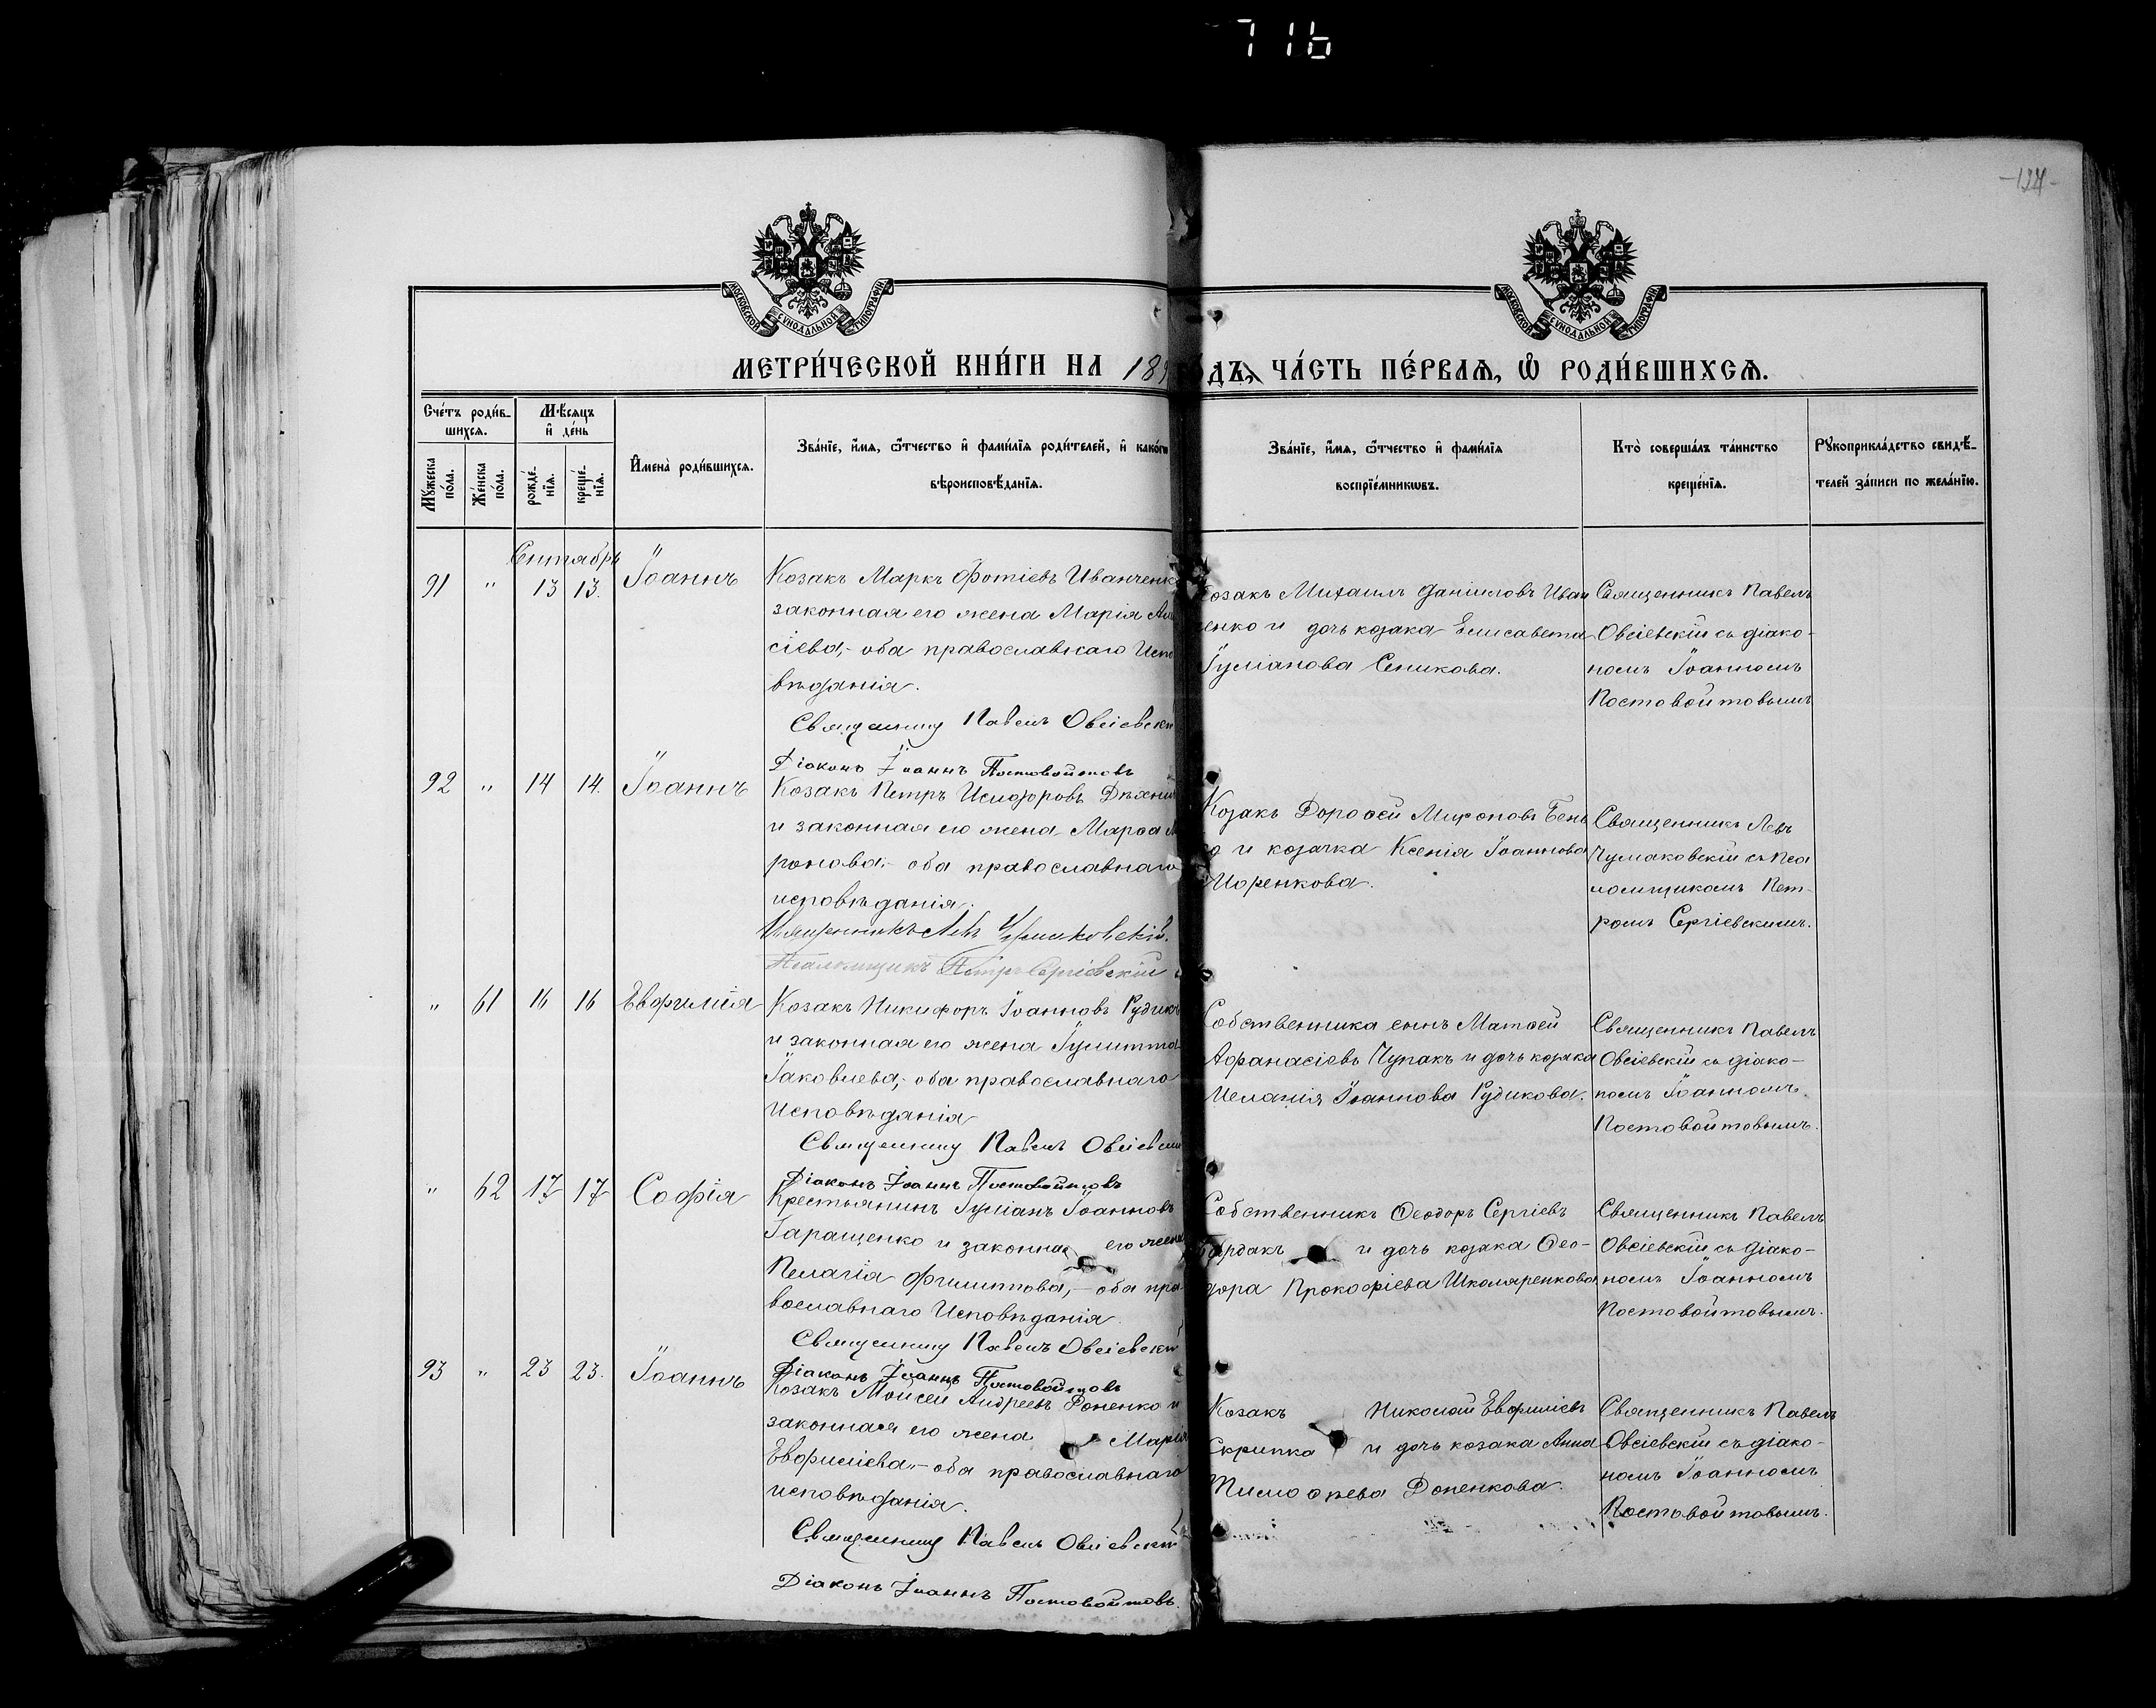 716
-134-
МОСКОВСКОЙ СУНОДАЛЬНОЙ ТИПОГРАФІИ
МОСКОВСКОЙ СУНОДАЛЬНОЙ ТИПОГРАФІИ
МЕТРИ́ЧЕСКОЙ КНИ́ГИ НА 189
ДЪ, ЧА́СТЬ ПЕ́РВАѦ, Ѽ РОДИ́ВШИХСѦ.
Сче́тъ роди́в-
шихсѧ.
Мꙋ́жеска по́ла.
Же́нска по́ла.
Мѣ́сѧцъ
и҆ де́нь
рожде́-
нїѧ.
креще́-
нїѧ.
И҆мена̀ роди́вшихсѧ.
Зва́нїе, и҆́мѧ, ѻ҆́тчество и҆ фамѝлїѧ роди́телей, и҆ како́гѡ
вѣроисповѣ́данїѧ.
Зва́нїе, и҆́мѧ, ѻ҆́тчество и҆ фамѝлїѧ
воспрїе́мникѡвъ.
Кто̀ соверша́лъ та́инство
креще́нїѧ.
Рꙋкоприкла́дство свидѣ́-
телей за́писи по жела́нїю.
Сентябрь
91 " 13 13. Іоаннъ
Козакъ Маркъ Фотіевъ Иванченк
законная его жена Марія Але
сіева,- оба православнаго Испо
вѣданія.
Священникъ Павелъ Овсіевскі
Діаконъ Іоаннъ Постовойтовъ
Козакъ Михаилъ Даніиловъ Иван
ченко и дочь козака Елисавета
Іуліанова Сеникова.
Священникъ Павелъ
Овсіевскій съ діако-
номъ Іоанномъ
Постовойтовымъ
92 " 14 14. Іоаннъ
Козакъ Петръ Исидоровъ
и законная его жена Марѳа М
ронова,- оба православнаго
исповѣданія.
Священникъ Левъ Чумаковскій.
Псаломщикъ Петръ Сергіевскій
Козакъ Дороѳей Мироновъ
и козачка Ксенія Іоаннова
Священникъ Левъ
Чумаковскій съ Пса
ломщикомъ Пет-
ромъ Сергіевскимъ.
" 61 16 16 Евфимія
Козакъ Никифоръ Іоанновъ Рудик
и законная его жена Іулитта
Іаковлева,- оба православнаго
Исповѣданія
Священникъ Павелъ Овсіевскі
Діаконъ Іоаннъ Постовойтовъ
Собственника сынъ Матѳей
Аѳанасіевъ Чупакъ и дочь козака
Меланія Іоаннова Рудикова.
Священникъ Павелъ
Овсіевскій съ діако-
номъ Іоанномъ
Постовойтовымъ.
" 62 17 17 Софія
Крестьянинъ Іуліанъ Іоанновъ
Гаращенко и законная его жена
Пелагія Филиппова,- оба пра
вославнаго Исповѣданія.
Священникъ Павелъ Овсіевскій
Діаконъ Іоаннъ Постовойтовъ
Собственникъ Ѳеодоръ Сергіевъ
Бардакъ и дочь козака Ѳео-
дора Прокофіева Школяренкова
Священникъ Павелъ
Овсіевскій съ діако-
номъ Іоанномъ
Постовойтовымъ.
93 " 23 23. Іоаннъ
Козакъ Моисей Андреевъ Доненко и
законная его жена Марія
Евфиміева,- оба православнаго
исповѣданія.
Священникъ Павелъ Овсіевскій
Діаконъ Іоаннъ Постовойтовъ.
Козакъ Николай Евфиміевъ
Скрипка и дочь козака Анна
Тимоѳеева Доненкова.
Священникъ Павелъ
Овсіевскій съ діако-
номъ Іоанномъ
Постовойтовымъ.